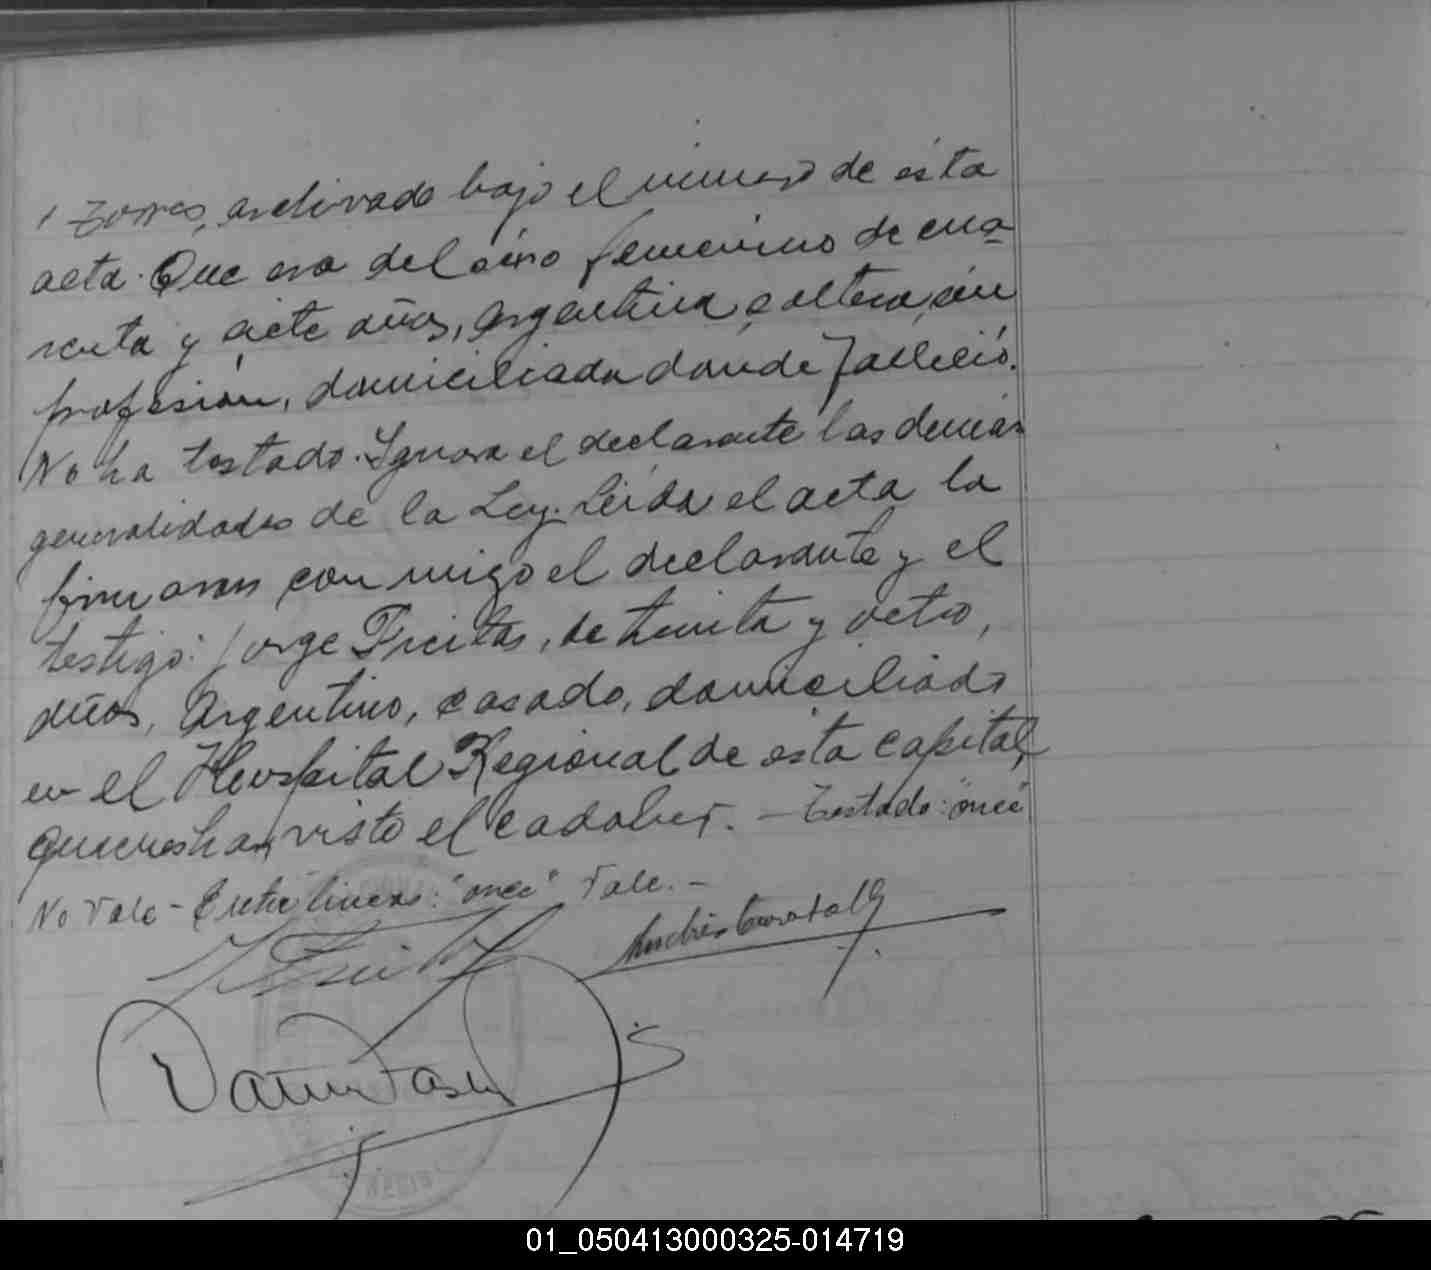 Torres, archivado bajo el número de ésta
acta. Que era del sexo femenino de cua-
renta y siete años, argentina, soltera, sin
profesión, domiciliada donde falleció.
No ha testado. Ignora el declarante las demás
generalidades de la Ley. Leída el acta la
firmaron con migo el declarante y el
testigo: Jorge Freitas, de treinta y ocho,
años, Argentino, casado, domiciliado
en el Hospital Regional de esta capital,
quienes han visto el cadaber. — Testado: "once"
No vale - Entre lineas: "once" Vale. -
01_050413000325-014719